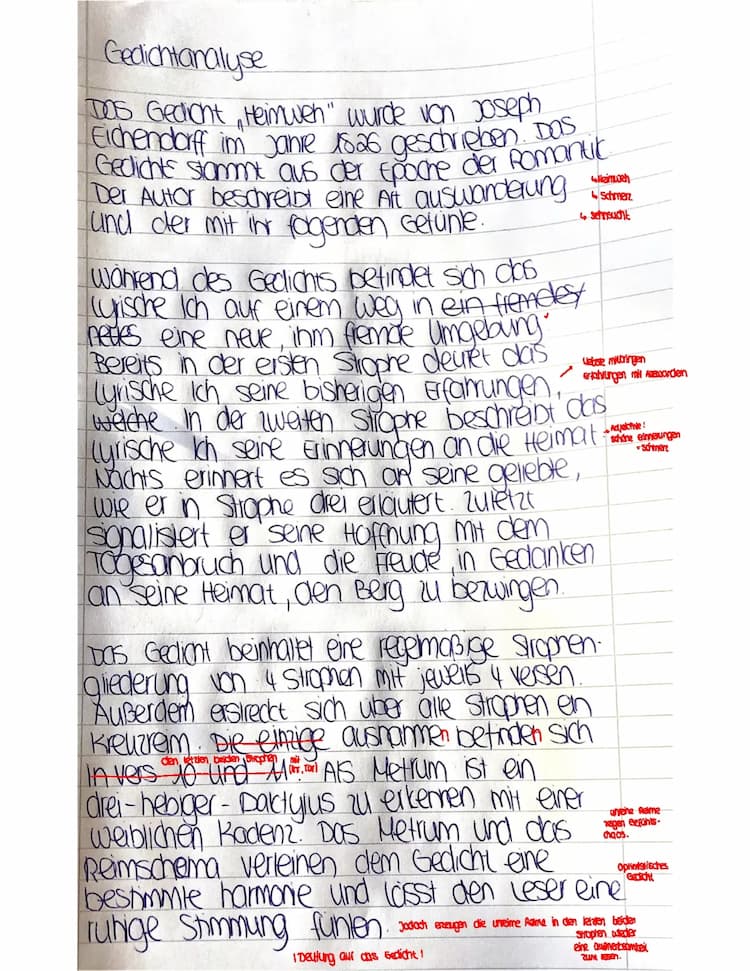 Gedichtanalyse
Das Gedicht „Heimweh" wurde von Joseph
Eichendorff im Jahre 1826 geschrieben. Das
Gedichts stammt aus der Epoche der Romantik
Der Autor beschreibt eine Art auswanderung
↳ Heimweh
↳ Schmerz
und der mit ihr folgenden Gefühle.
↳ Sehnsucht
Während des Gedichts befindet sich das
lyrische Ich auf einem Weg in ein fremdes
neues eine neue, ihm fremde Umgebung
Bereits in der ersten Strophe deutet das
Liebste mitbringen
lyrische Ich seine bisherigen Erfahrungen,
Erfahrungen mit Auswandern
welche. In der zweiten Strophe beschreibt das
lyrische Ich seine Erinnerungen an die Heimat.
Adjektive:
schöne Erinnerungen
+ schmerz
Nachts erinnert es sich an seine geliebte,
wie er in Strophe drei erläutert. Zuletzt
signalisiert er seine Hoffnung mit dem
Tagesanbruch und die Freude, in Gedanken
an seine Heimat, den Berg zu bezwingen.
Das Gedicht beinhaltet eine regelmäßige Strophen-
gliederung von 4 Strophen mit jeweils 4 versen.
Außerdem erstreckt sich über alle Strophen ein
Kreuzreim. Die einzige ausnahmen befinden sich
den letzten beiden Strophen mit
(ihr, Tür)
In vers 10 und 11. Als Metrum ist ein
drei-hebiger-Daktylus zu erkennen mit einer
weiblichen Kadenz. Das Metrum und das
unreine Reime
zeigen Gefühls-
chaos.
Reimschema verleihen dem Gedicht eine
Gedicht
bestimmte harmonie und lässt den Leser eine
ruhige Stimmung fühlen.
Jedoch erzeugen die unreine Reime in den letzten beiden
Strophen wieder
eine Aufmerksamkeit
zum lesen.
! Deutung auf das Gedicht !